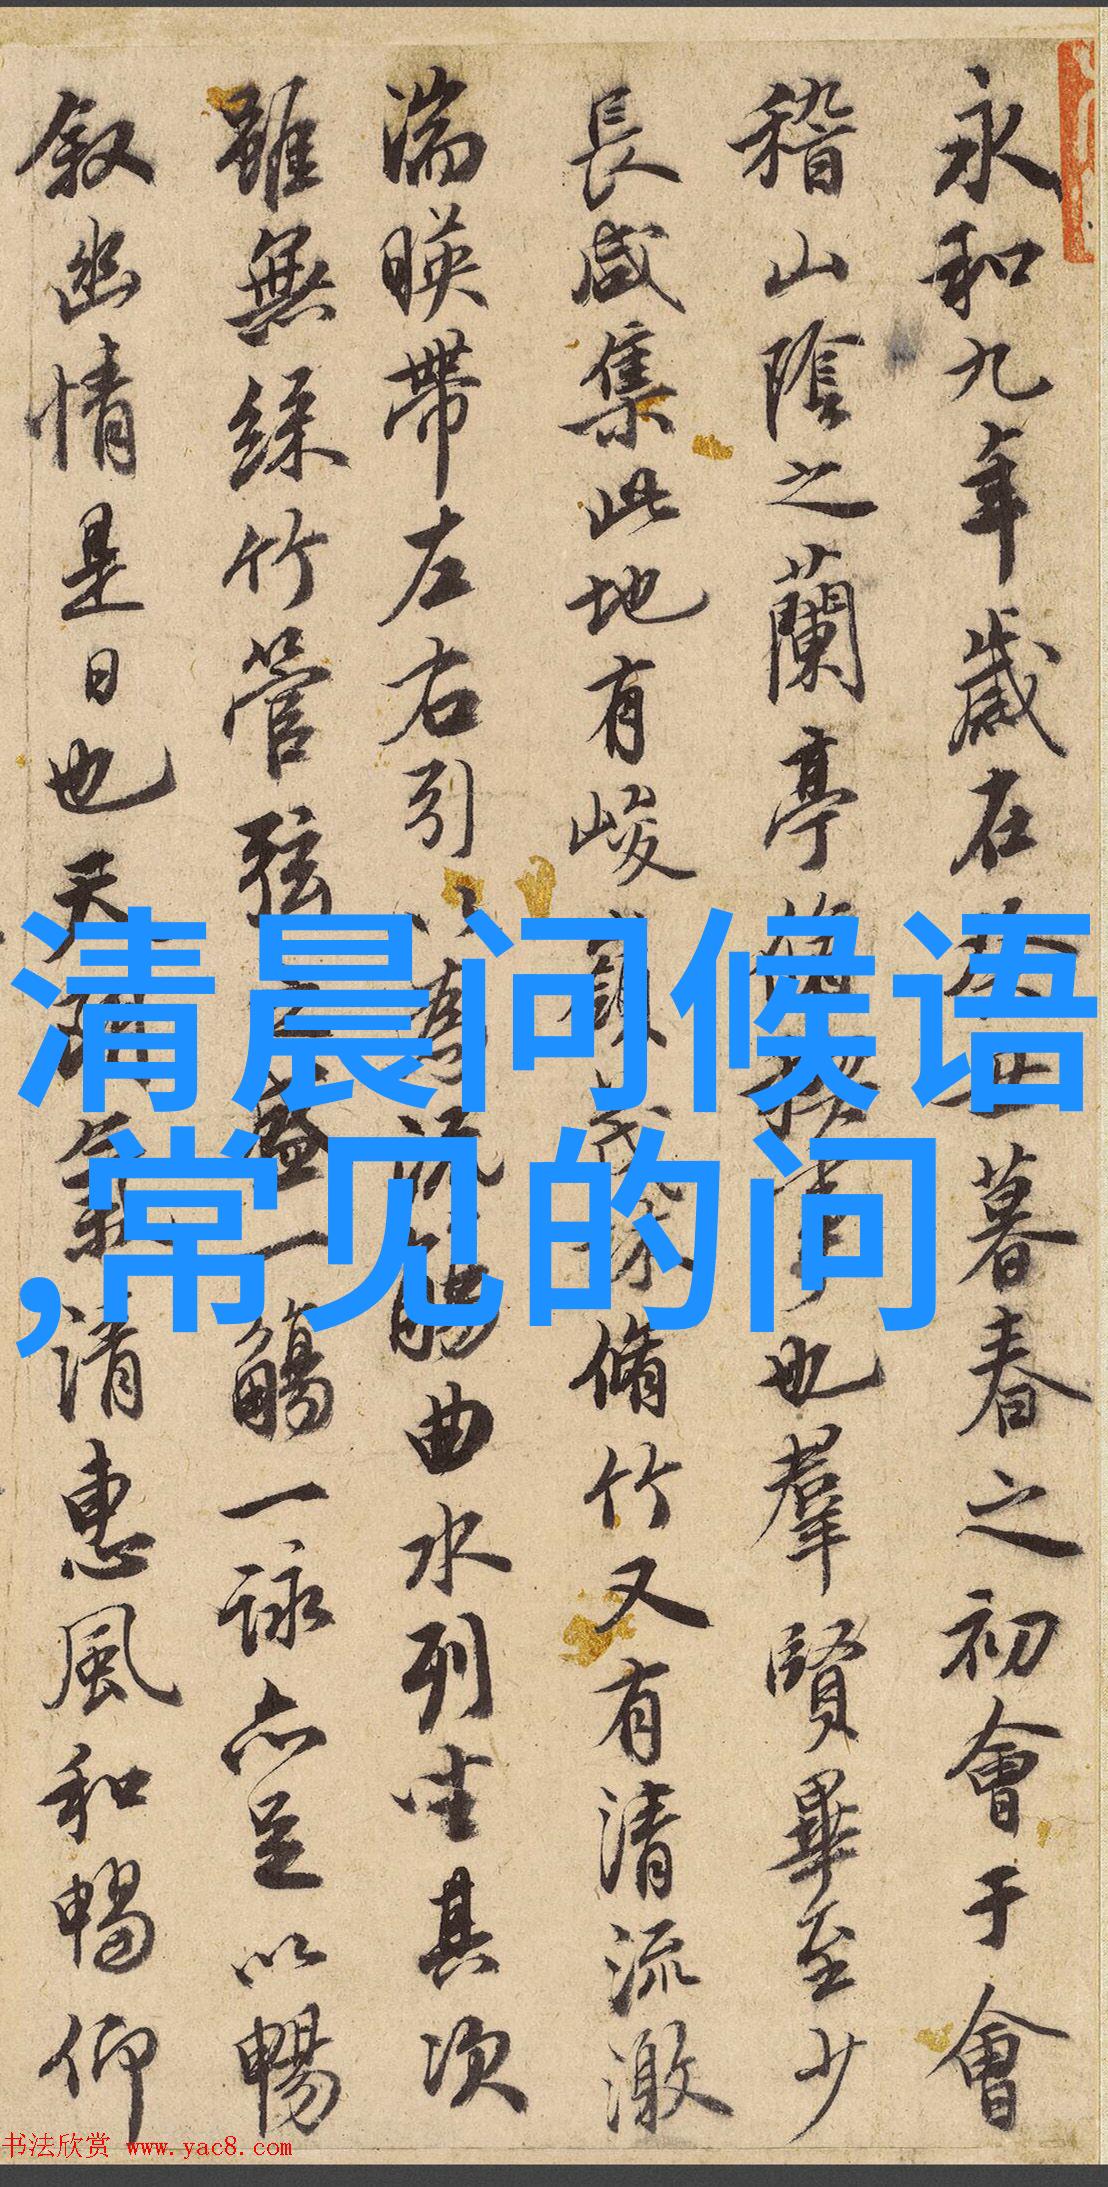 永和九年歲在癸丑暮春之初會于會
稽山陰之蘭亭脩稧事也羣賢畢至少
長咸集此地有峻領茂林脩竹又有清流激
湍暎帶左右引以為流觴曲水列坐其次
雖無絲竹管弦之盛一觴一詠亦足以暢
叙幽情是日也天朗氣清惠風和暢仰
清晨问候语
,常见的问
书法欣赏 www.yac8.com